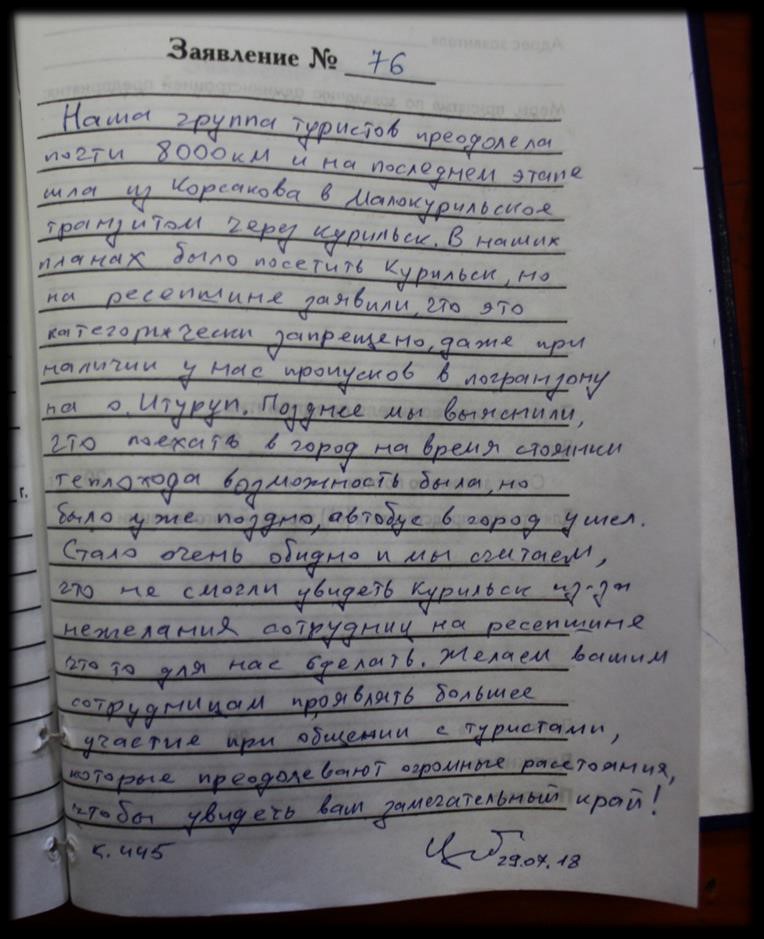 Заявление № 76
Наша группа туристов преодолела
почти 8000км и на последнем этапе
шла из Корсакова в Малокурильское
транзитом через Курильск. В наших
планах было посетить Курильск, но
на ресепшине заявили, что это
категорически запрещено, даже при
наличии у нас пропусков в погранзону
на о. Итуруп. Позднее мы выяснили,
что поехать в город на время стоянки
теплохода возможность была, но
было уже поздно, автобус в город ушел.
Стало очень обидно и мы считаем,
что не смогли увидеть Курильск из-за
нежелания сотрудниц на ресепшине
что то для нас сделать. Желаем вашим
сотрудницам проявлять большее
участие при общении с туристами,
которые преодолевают огромные расстояния,
чтобы увидеть ваш замечательный край!
к. 445 29.07.18
г.